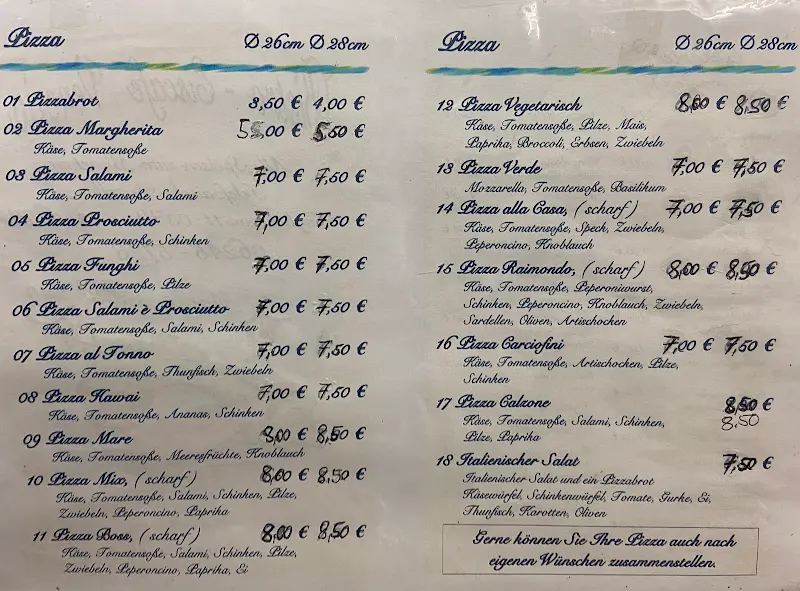 Pizza Ø 26cm Ø 28cm
01 Pizzabrot 3,50 € 4,00 €
02 Pizza Margherita 5,00 € 5,50 €
Käse, Tomatensoße
03 Pizza Salami 7,00 € 7,50 €
Käse, Tomatensoße, Salami
04 Pizza Prosciutto 7,00 € 7,50 €
Käse, Tomatensoße, Schinken
05 Pizza Funghi 7,00 € 7,50 €
Käse, Tomatensoße, Pilze
06 Pizza Salami è Prosciutto 7,00 € 7,50 €
Käse, Tomatensoße, Salami, Schinken
07 Pizza al Tonno 7,00 € 7,50 €
Käse, Tomatensoße, Thunfisch, Zwiebeln
08 Pizza Hawai 7,00 € 7,50 €
Käse, Tomatensoße, Ananas, Schinken
09 Pizza Mare 8,00 € 8,50 €
Käse, Tomatensoße, Meeresfrüchte, Knoblauch
10 Pizza Mix, (scharf) 8,00 € 8,50 €
Käse, Tomatensoße, Salami, Schinken, Pilze,
Zwiebeln, Peperoncino, Paprika
11 Pizza Boss, (scharf) 8,00 € 8,50 €
Käse, Tomatensoße, Salami, Schinken, Pilze,
Zwiebeln, Peperoncino, Paprika, Ei
Pizza Ø 26cm Ø 28cm
12 Pizza Vegetarisch 8,00 € 8,50 €
Käse, Tomatensoße, Pilze, Mais,
Paprika, Broccoli, Erbsen, Zwiebeln
13 Pizza Verde 7,00 € 7,50 €
Mozzarella, Tomatensoße, Basilikum
14 Pizza alla Casa, (scharf) 7,00 € 7,50 €
Käse, Tomatensoße, Speck, Zwiebeln,
Peperoncino, Knoblauch
15 Pizza Raimondo, (scharf) 8,00 € 8,50 €
Käse, Tomatensoße, Peperoniwurst,
Schinken, Peperoncino, Knoblauch, Zwiebeln,
Sardellen, Oliven, Artischocken
16 Pizza Carciofini 7,00 € 7,50 €
Käse, Tomatensoße, Artischocken, Pilze,
Schinken
17 Pizza Calzone 8,50 €
Käse, Tomatensoße, Salami, Schinken, 8.50
Pilze, Paprika
18 Italienischer Salat 7,50 €
Italienischer Salat und ein Pizzabrot
Käsewürfel, Schinkenwürfel, Tomate, Gurke, Ei,
Thunfisch, Karotten, Oliven
Gerne können Sie Ihre Pizza auch nach
eigenen Wünschen zusammenstellen.